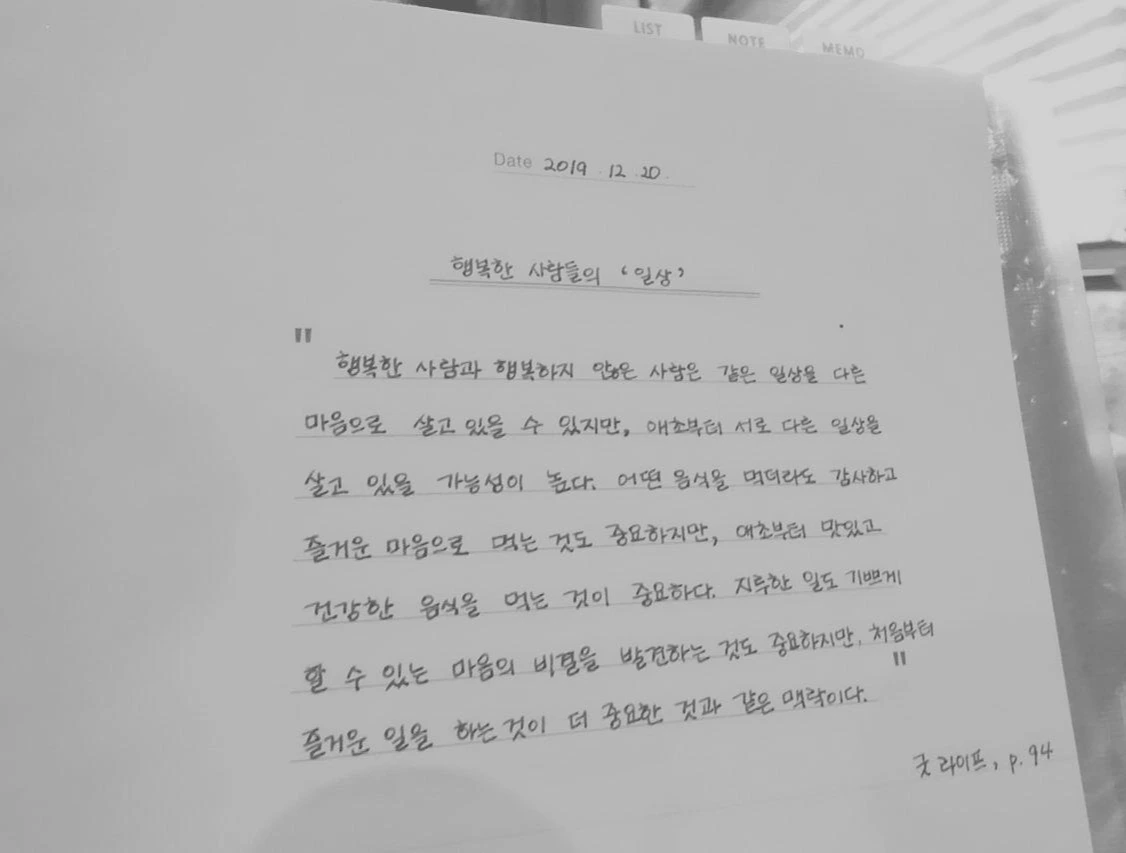 LIST
NOTE
MEMO
Date 2019. 12. 20.
행복한 사람들의 '일상'
"
행복한 사람과 행복하지 않은 사람은 같은 일상을 다른
마음으로 살고 있을 수 있지만, 애초부터 서로 다른 일상을
살고 있을 가능성이 높다. 어떤 음식을 먹더라도 감사하고
즐거운 마음으로 먹는 것도 중요하지만, 애초부터 맛있고
건강한 음식을 먹는 것이 중요하다. 지루한 일도 기쁘게
할 수 있는 마음의 비결을 발견하는 것도 중요하지만, 처음부터
즐거운 일을 하는 것이 더 중요한 것과 같은 맥락이다. "
굿 라이프, p.94